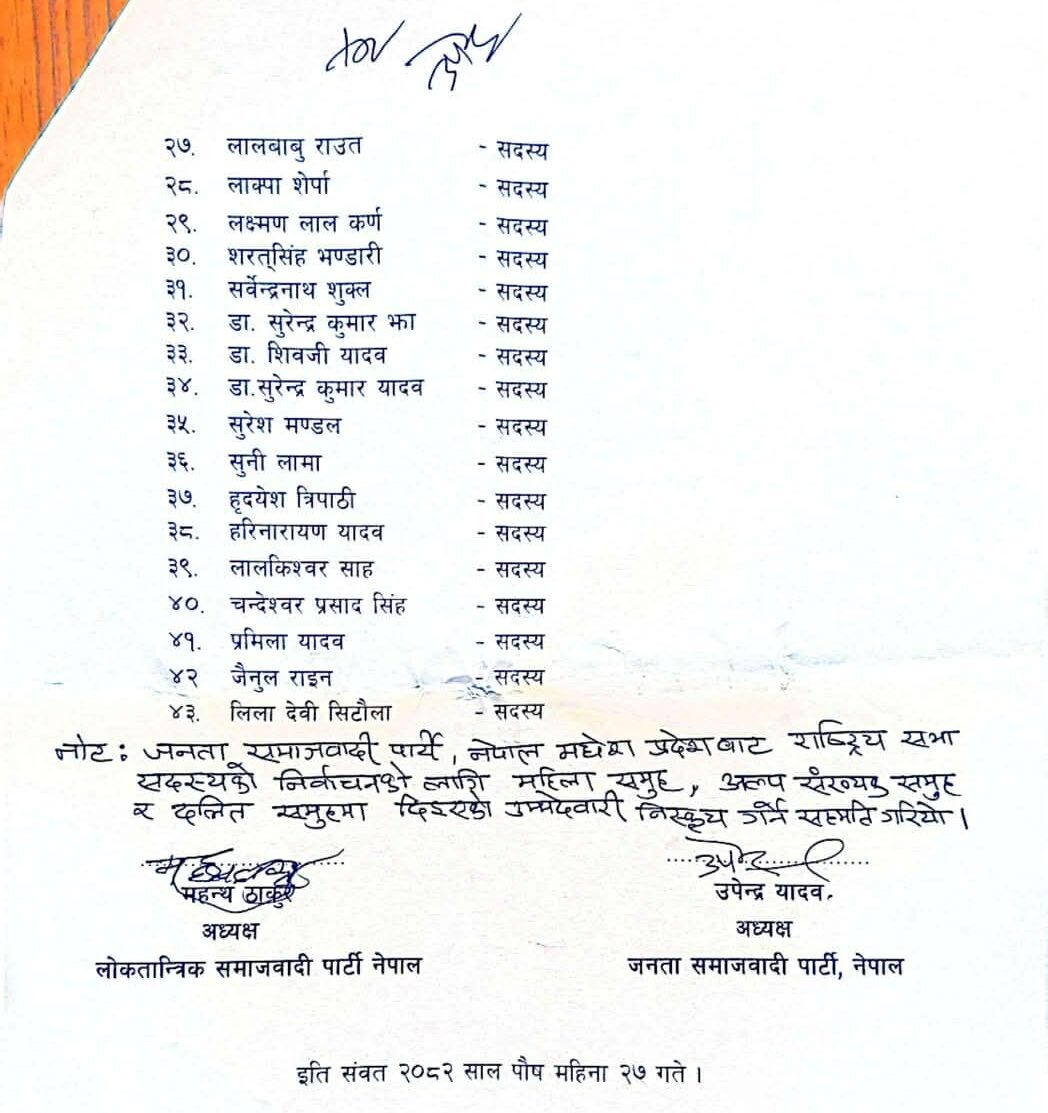 २७. लालबाबु राउत - सदस्य
२८. लाक्पा शेर्पा - सदस्य
२९. लक्ष्मण लाल कर्ण - सदस्य
३०. शरत्‌सिंह भण्डारी - सदस्य
३१. सर्वेन्द्रनाथ शुक्ल - सदस्य
३२. डा. सुरेन्द्र कुमार झा - सदस्य
३३. डा. शिवजी यादव - सदस्य
३४. डा.सुरेन्द्र कुमार यादव - सदस्य
३५. सुरेश मण्डल - सदस्य
३६. सुनी लामा - सदस्य
३७. हृदयेश त्रिपाठी - सदस्य
३८. हरिनारायण यादव - सदस्य
३९. लालकिश्वर साह - सदस्य
४०. चन्देश्वर प्रसाद सिंह - सदस्य
४१. प्रमिला यादव - सदस्य
४२ जैनुल राइन - सदस्य
४३. लिला देवी सिटौला - सदस्य
नोट: जनता समाजवादी पार्टी, नेपाल मधेश प्रदेशबाट राष्ट्रिय सभा
सदस्यको निर्वाचनको लागि महिला समुह, अल्प संख्यक समुह
र दलित समुहमा दिइएको उम्मेदवारी निस्कृय गर्न सहमति गरियो।
महन्थ ठाकुर उपेन्द्र यादव.
अध्यक्ष अध्यक्ष
लोकतान्त्रिक समाजवादी पार्टी नेपाल जनता समाजवादी पार्टी, नेपाल
इति संवत २०८२ साल पौष महिना २७ गते ।